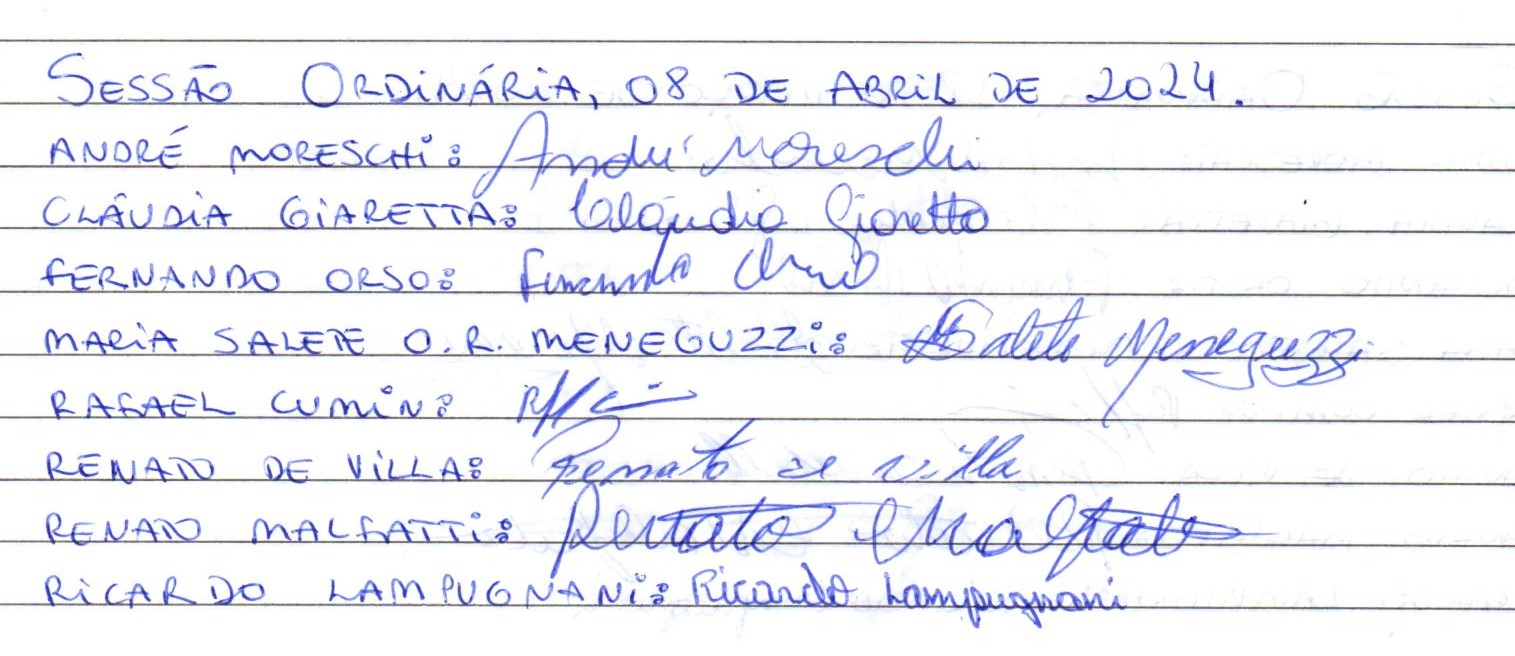 SESSÃO ORDINÁRIA, 08 DE ABRIL DE 2024.
ANDRÉ MORESCHI: André Moreschi
CLÁUDIA GIARETTA: Claúdia Giaretta
FERNANDO ORSO: Fernando Orso
MARIA SALETE O.R. MENEGUZZI: MSalete Meneguzzi
RAFAEL CUMIN:
RENATO DE VILLA: Renato de Villa
RENATO MALFATTI: Renato Malfatti
RICARDO LAMPUGNANI: Ricardo Lampugnani